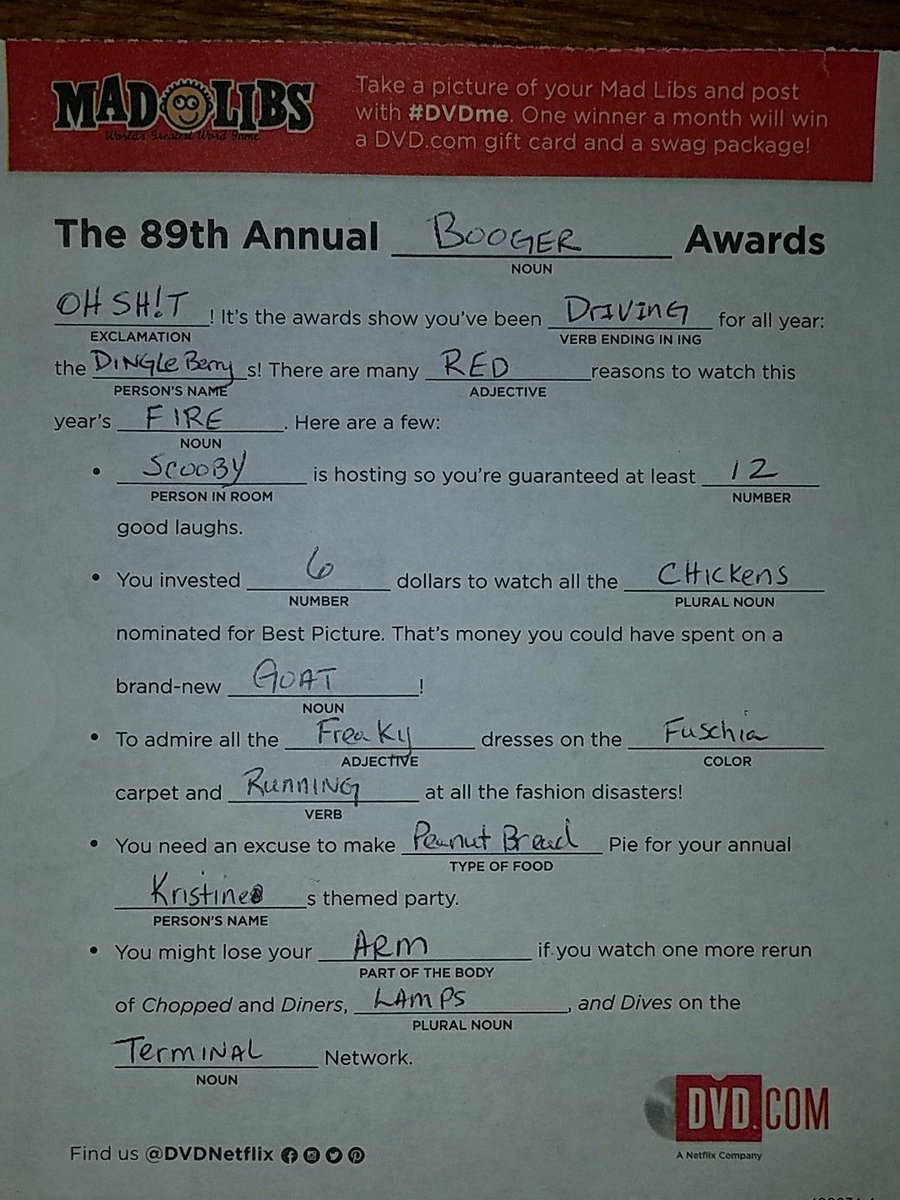 MAD LIBS
World's Greatest Word Game
Take a picture of your Mad Libs and post
with #DVDme. One winner a month will win
a DVD.com gift card and a swag package!
The 89th Annual BOOGER Awards
NOUN
OH SH!T ! It's the awards show you've been DRIVING for all year:
EXCLAMATION VERB ENDING IN ING
the DINGLE Berry s! There are many RED reasons to watch this
PERSON'S NAME ADJECTIVE
year's FIRE. Here are a few:
NOUN
• SCOOBY is hosting so you're guaranteed at least 12
PERSON IN ROOM NUMBER
good laughs.
• You invested 6 dollars to watch all the CHickens
NUMBER PLURAL NOUN
nominated for Best Picture. That's money you could have spent on a
brand-new GOAT!
NOUN
• To admire all the Freaky dresses on the Fuschia
ADJECTIVE COLOR
carpet and RUNNING at all the fashion disasters!
VERB
• You need an excuse to make Peanut Bread Pie for your annual
TYPE OF FOOD
Kristine s themed party.
PERSON'S NAME
• You might lose your ARM if you watch one more rerun
PART OF THE BODY
of Chopped and Diners, LAMPS, and Dives on the
PLURAL NOUN
TermINAL Network.
NOUN
DVD.COM
A Netflix Company
Find us @DVDNetflix